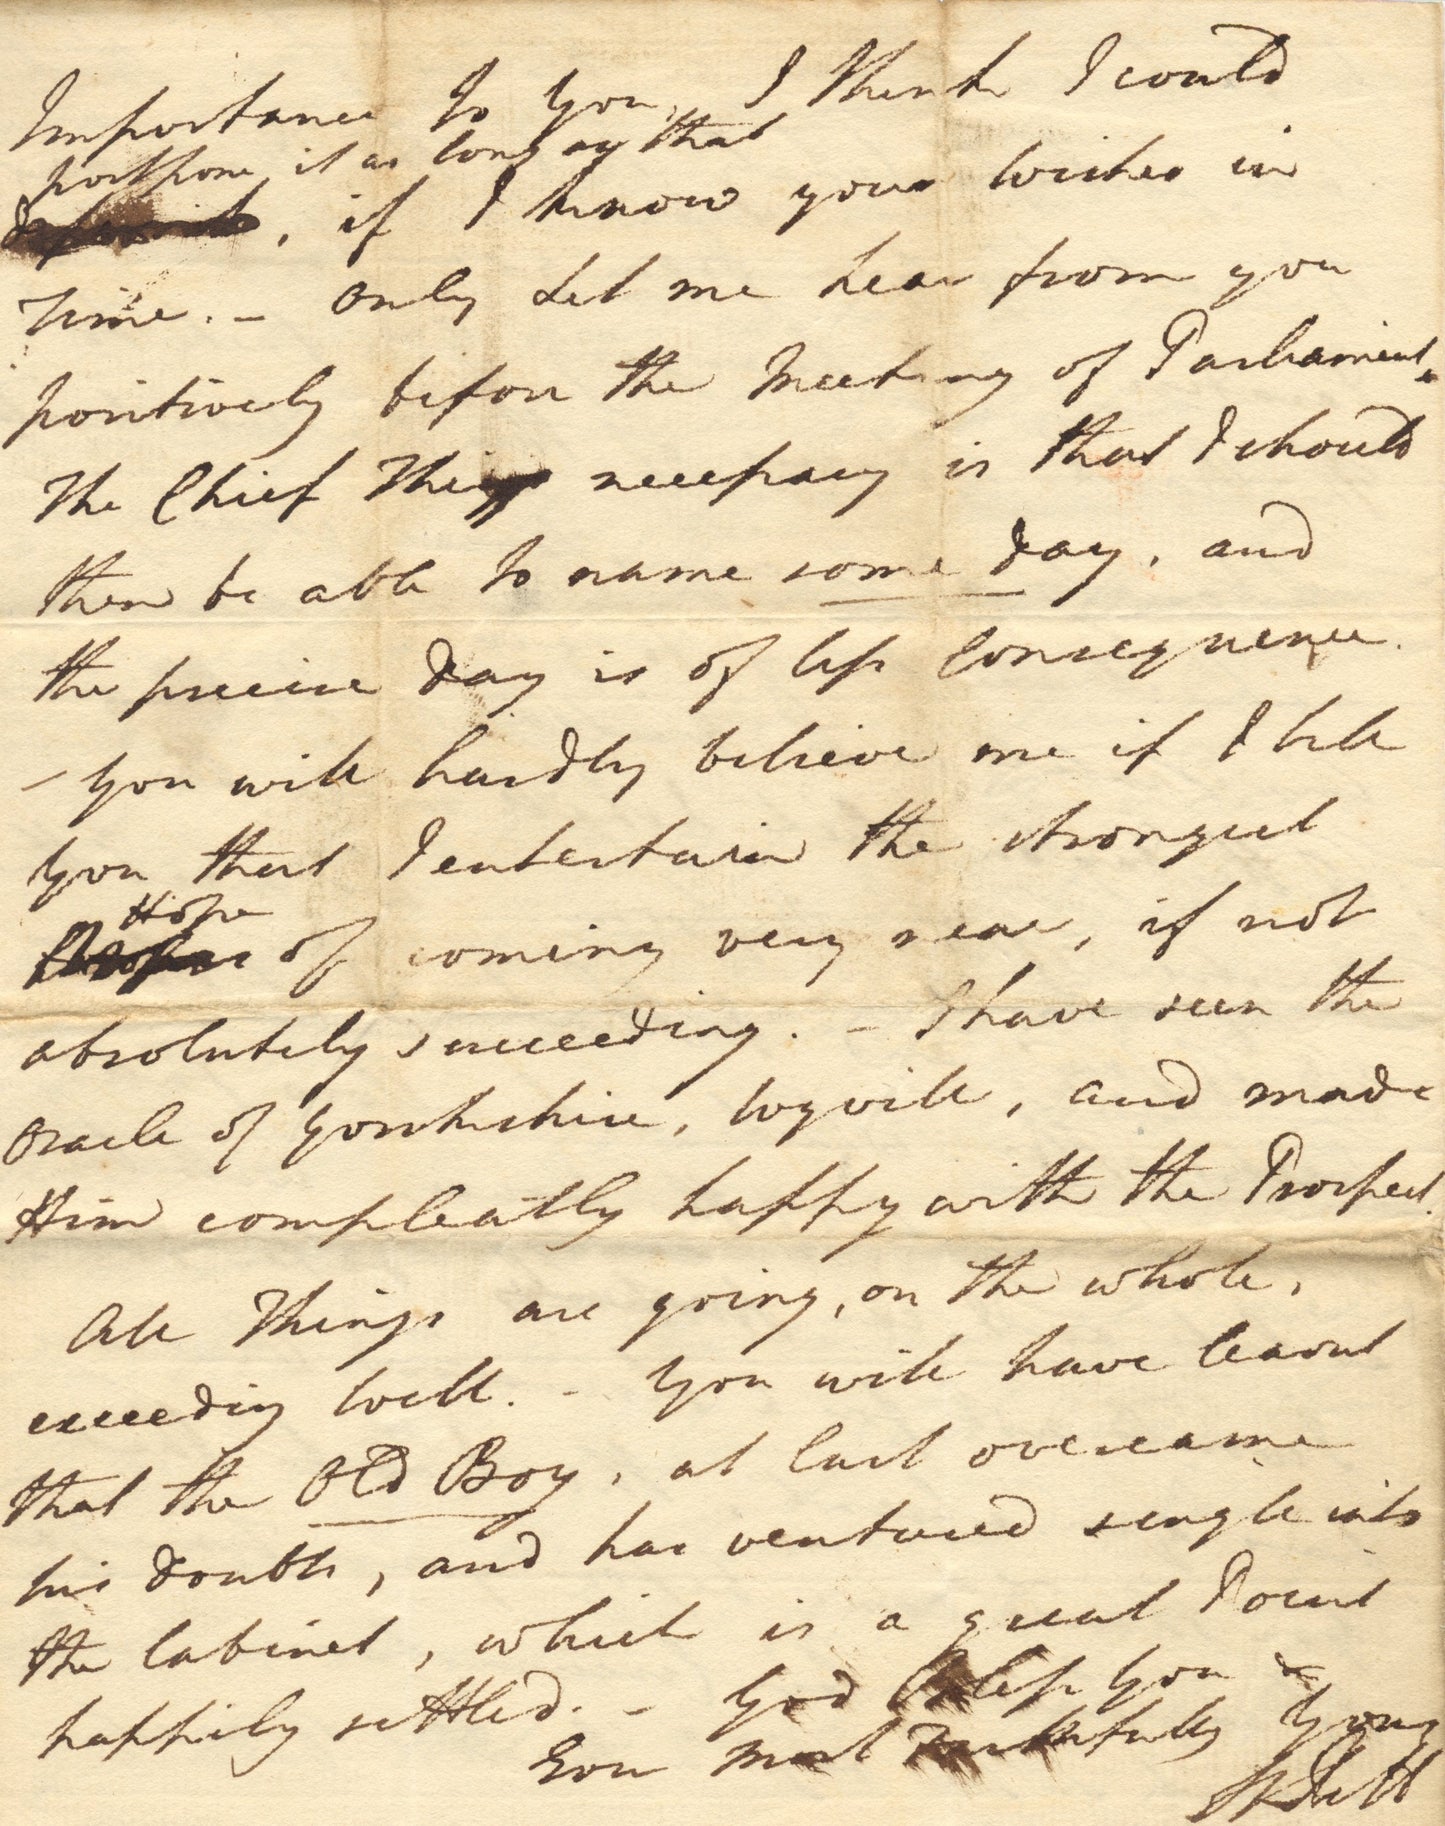 Importance to You, I think I could
postpone it as long as that
, if I know your wishes in
Time. – Only let me hear from you
positively before the Meeting of Parliament.
The Chief Thing necessary is that I should
then be able to name some day, and
the precise day is of less Consequence.
– You will hardly believe me if I tell
You that I entertain the strongest
Hope
of coming very near, if not
absolutely succeeding. – I have seen the
Oracle of Yorkshire, Wyvill, and made
Him compleatly happy with the Prospect.
All Things are going, on the whole,
exceeding well. – You will have learnt
that the Old Boy, at last overcame
his doubts, and has ventured single into
the Cabinet, which is a great Point
happily settled. – God Bless You &
Ever Most Faithfully Yours
W Pitt